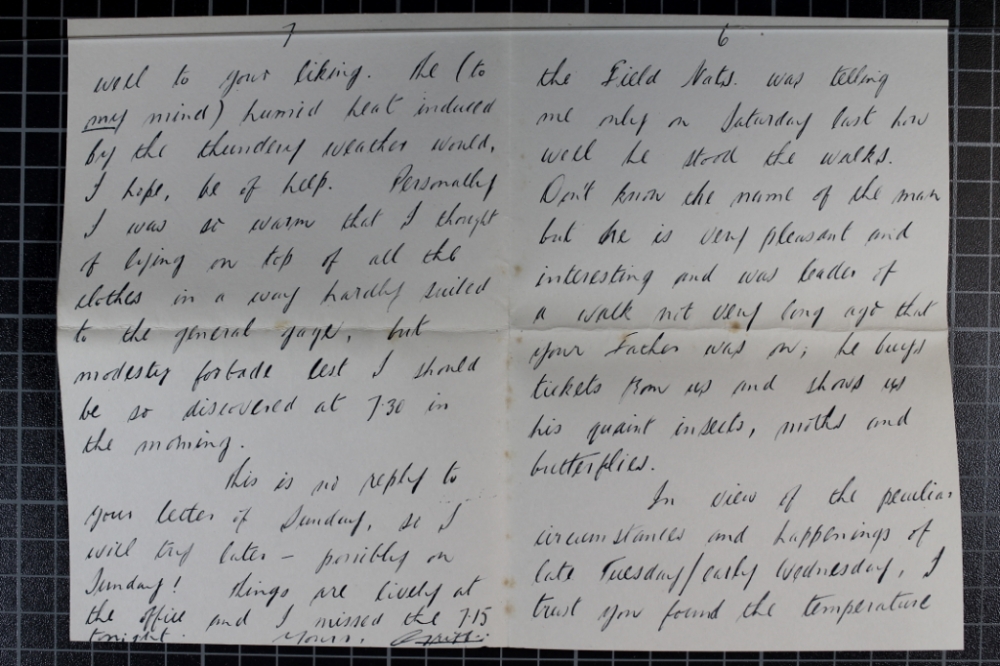 6
the Field Nats. was telling
me only on Saturday last how
well he stood the walks.
Don't know the name of the man
but he is very pleasant and
interesting and was leader of
a walk not very long ago that
your Father was on; he buys
tickets from us and shows us
his quaint insects, moths and
butterflies.
In view of the peculiar
circumstances and happenings of
late Tuesday/early Wednesday, I
trust you found the temperature
7
well to your liking. The (to
my mind) humid heat induced
by the thundery weather would,
I hope, be of help. Personally
I was so warm that I thought
of lying on top of all the
clothes in a way hardly suited
to the general gaze, but
modesty forbade lest I should
be so discovered at 7.30 in
the morning.
This is no reply to
your letter of Sunday, so I
will try later – possibly on
Sunday! Things are lively at
the office and I missed the 7.15
tonight. Yours,